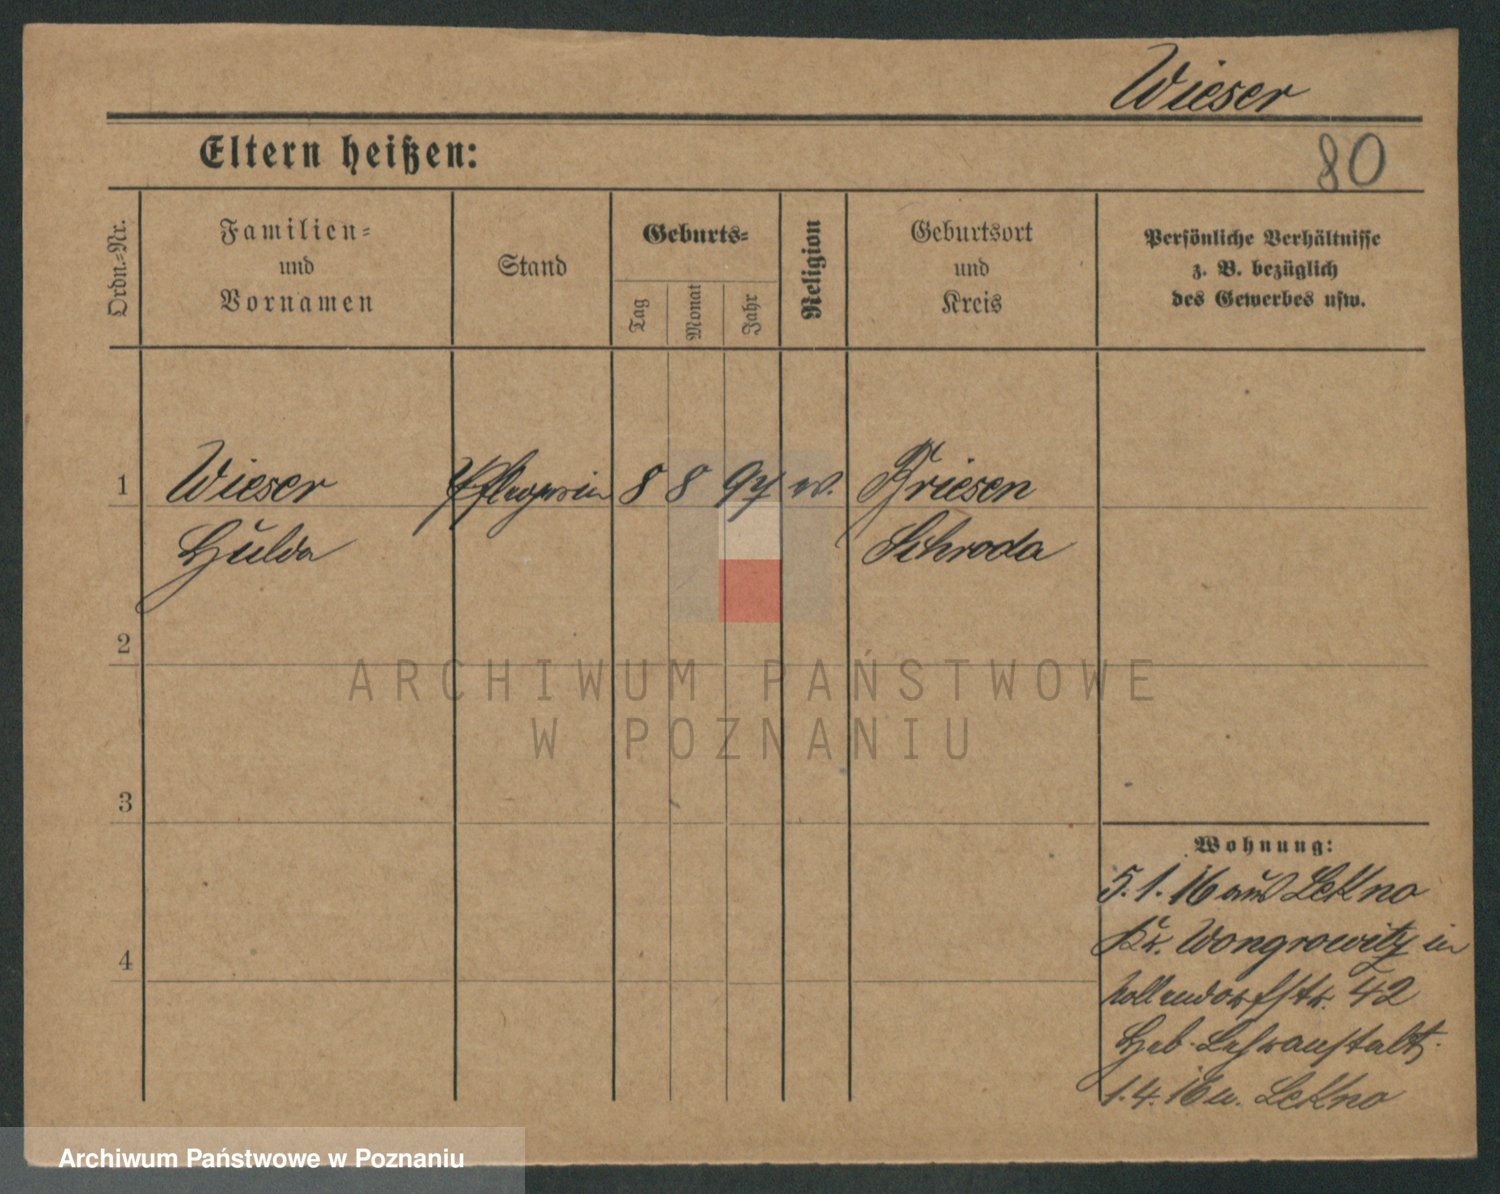 Wieser
Eltern heißen:
80
Ordn.-Nr.
Familien-
und
Vornamen
Stand
Geburts-
Tag
Monat
Jahr
Religion
Geburtsort
und
Kreis
Persönliche Verhältnisse
z. B. bezüglich
des Gewerbes usw.
1 Wieser Pflegerin 8 8 94 ev. Briesen
Hulda Schroda
2
ARCHIWUM PAŃSTWOWE
W POZNANIU
3
Wohnung:
5. 1. 16 aus Lekno
Kr. Wongrowitz in
4
Nollendorfstr. 42
Heb. Lehranstalt.
1. 4. 16 n. Lekno
Archiwum Państwowe w Poznaniu